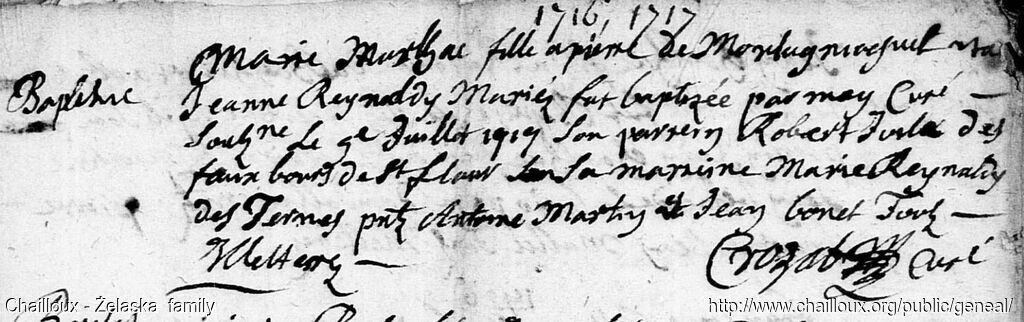 1716, 1717
Marie Marthae fille a pierre de Montagniaguet et a
Baptesme
Jeanne Reynaldy Mariez fut baptizée par moy Curé
soubzne le 9e Juillet 1717 son parrein Robert des
faux bourgs de St flour sa marrine Marie Reynaldy
des Ternes pntz Antoine Martin et Jean bonet Touts
Illetterez
Crozat Curé
Chailloux - Żelaska family
http://www.chailloux.org/public/geneal/